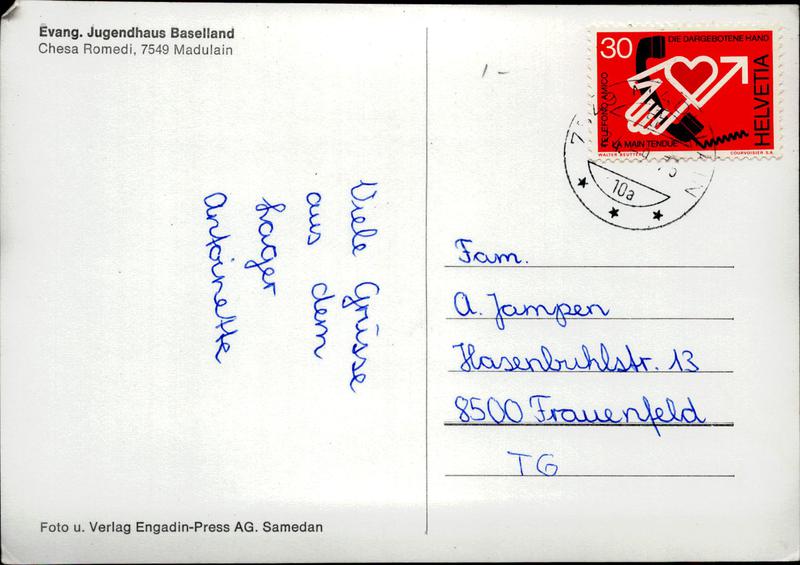 Evang. Jugendhaus Baselland
Chesa Romedi, 7549 Madulain
Viele Grüsse
aus dem
Lager
Antoinette
Foto u. Verlag Engadin-Press AG. Samedan
30
DIE DARGEBOTENE HAND
TELEFONO AMICO
LA MAIN TENDUE
HELVETIA
WALTER BEUTTER
COURVOISIER S.A.
10a
Fam.
A. Jampen
Hasenbühlstr. 13
8500 Frauenfeld
TG